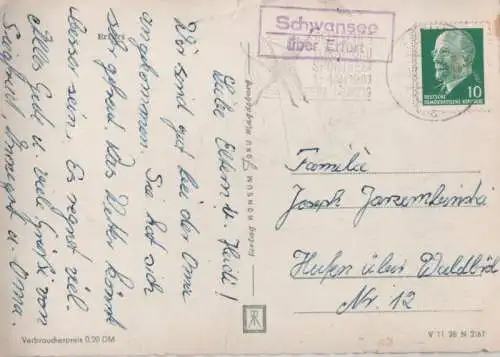 Erfurt
Liebe Eltern u. Heidi!
Wir sind gut bei der Oma
angekommen. Sie hat sich
sehr gefreut. Das Wetter könnte
besser sein. Es regnet viel.
Alles Gute u. viel Grüße von
Siegfried, u. Oma.
Verbraucherpreis 0,20 DM
Schwansee
über Erfurt
DEUTSCHE
DEMOKRATISCHE REPUBLIK
10
Familie
Joseph
über
Nr. 12
V 11 28 N 2167